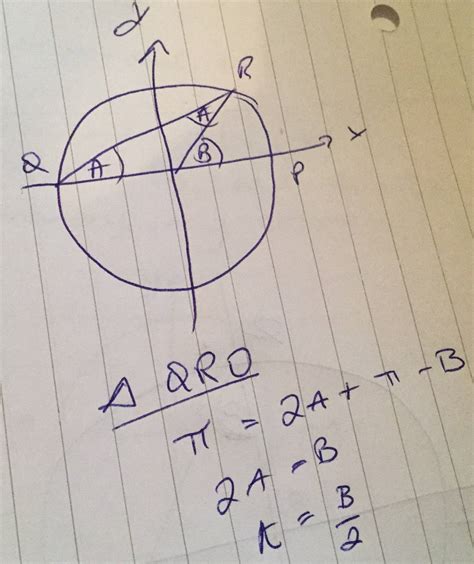 y
R
A
x
Q
A
B
P
Δ QRO
π = 2A + π - B
2A = B
A = B/2